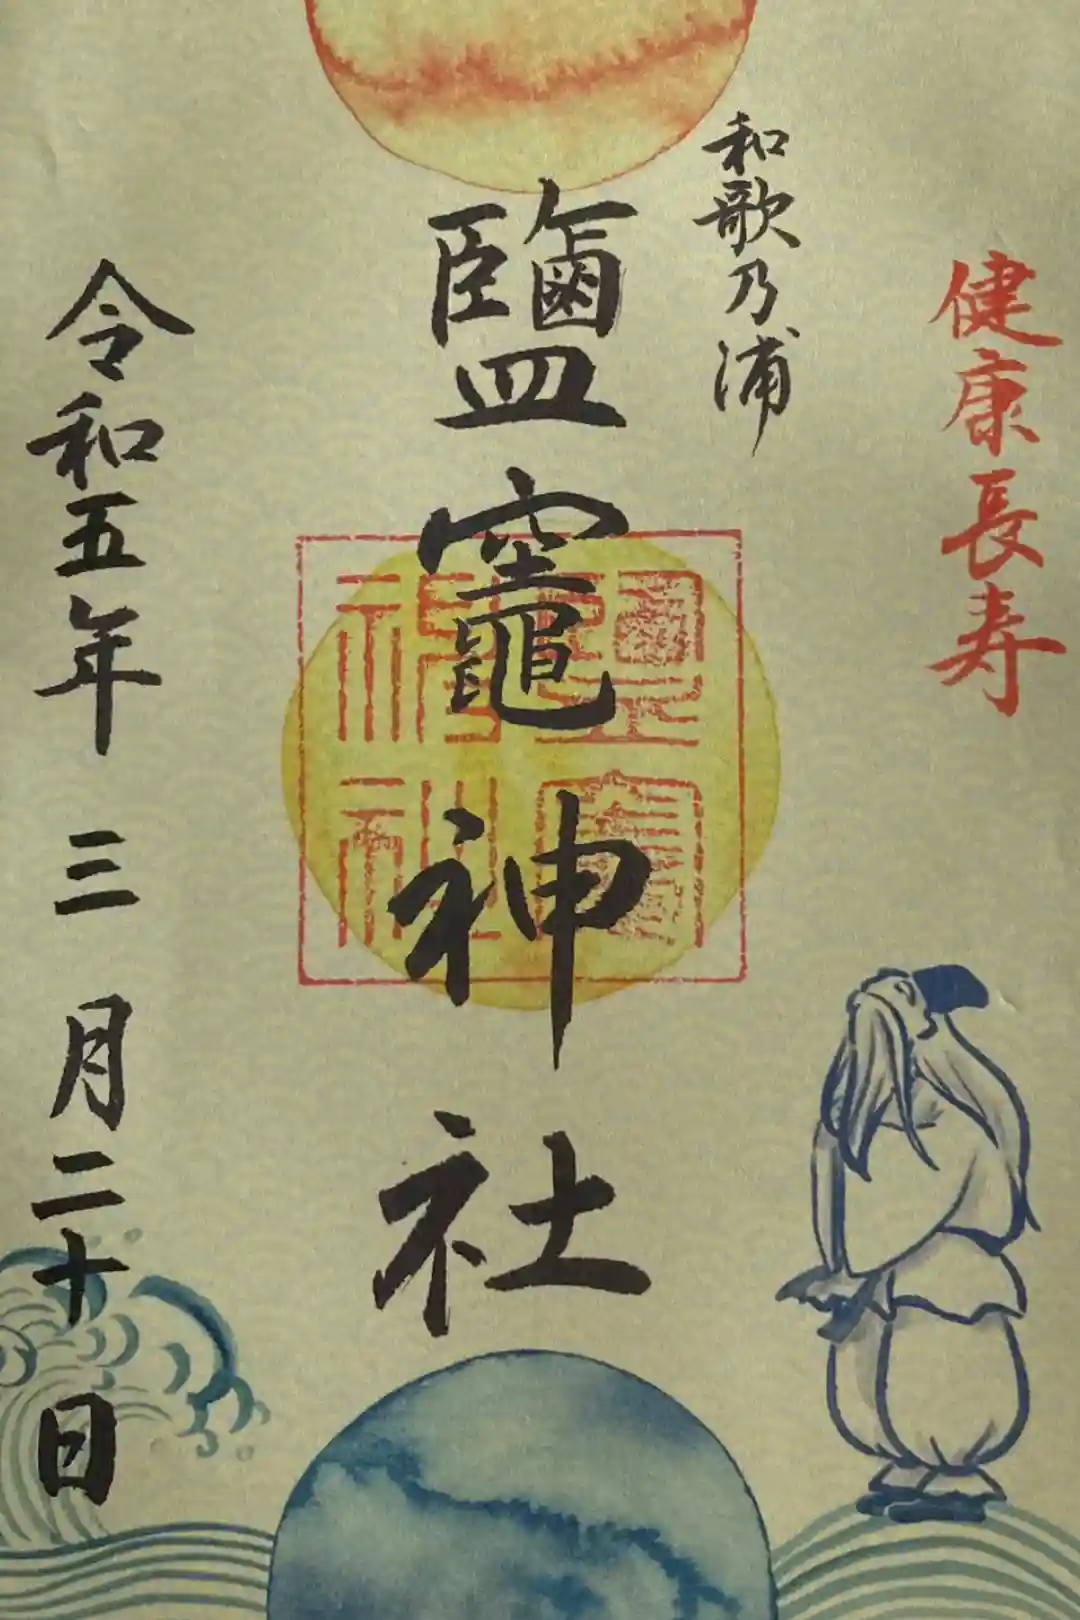 健康長寿
和歌乃浦
鹽竈神社
鹽竈神社
令和五年三月二十日